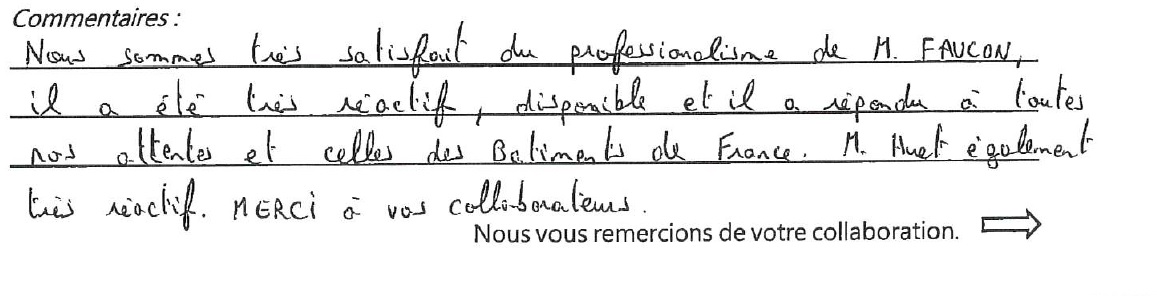 Commentaires :
Nous sommes très satisfait du professionalisme de M. FAUCON,
il a été très réactif, disponible et il a répondu à toutes
nos attentes et celles des Batiments de France. M. Huet également
très réactif. MERCI à vos collaborateurs.
Nous vous remercions de votre collaboration.